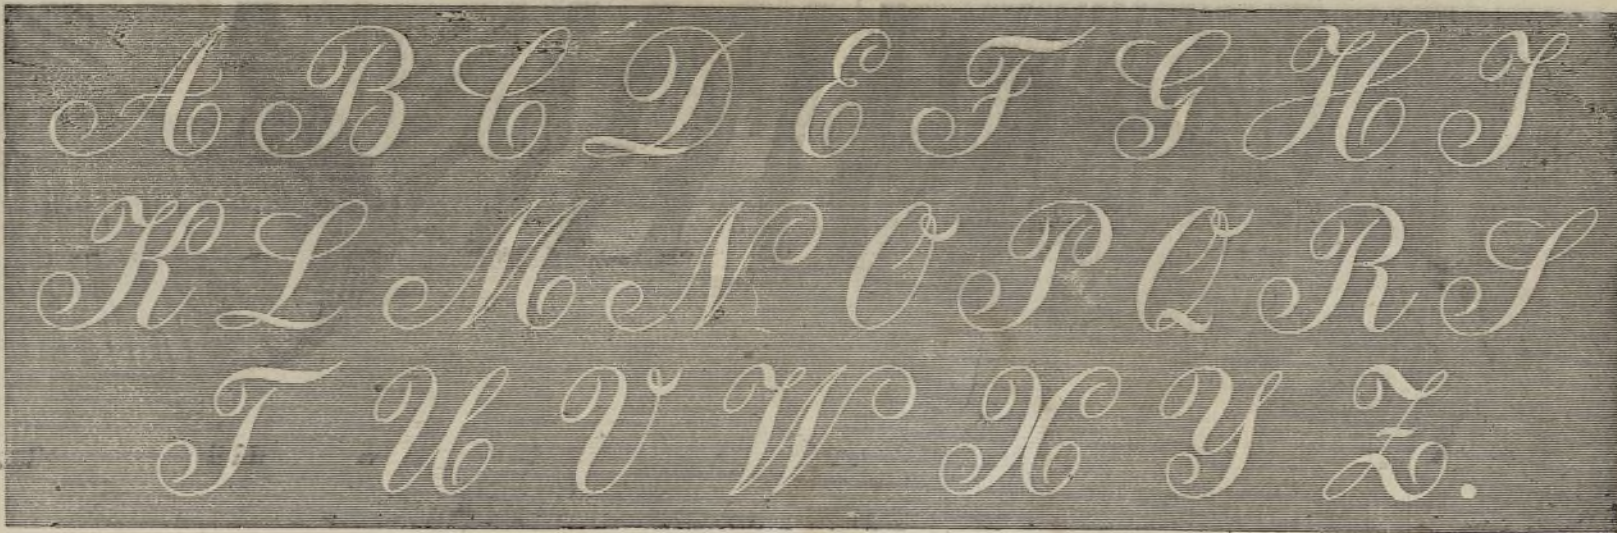 A B C D E F G H I
K L M N O P Q R S
T U V W X Y Z.